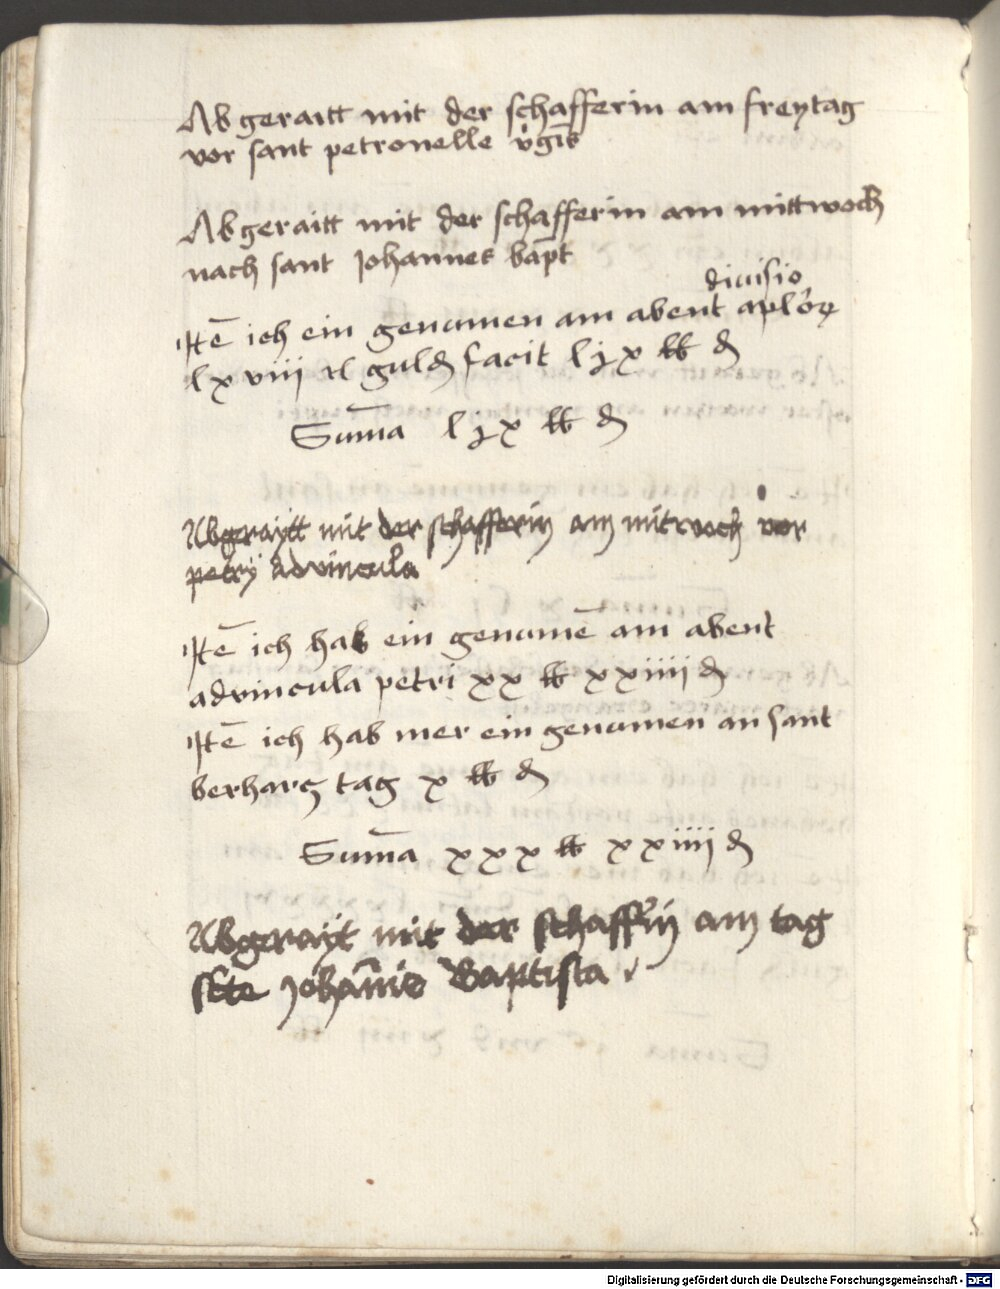 Abgeraitt mit der schafferin am freytag
vor sant petronelle v̉gīs
Abgeraitt mit der schafferin am mittwoch
nach sant Johannes bapt̄
diuisio
Itē ich ein genumen am abent aplōꝝ
lxviij rl guldꝭ facit ljx ℔ ₰
Sum̄a ljx ℔ ₰
Abgeraytt mit der schafferin am mitwoch vor
petrij Advincula
Itē ich hab ein genumē am abent
advincula petri xx ℔ xxiiij ₰
Itē ich hab mer ein genumen an sant
berharcz tag x ℔ ₰
Sum̄a xxx ℔ xxiiij ₰
Abgerayt mit der schaff̉in am tag
scte Johan̄is Baptista
Digitalisierung gefördert durch die Deutsche Forschungsgemeinschaft - DFG